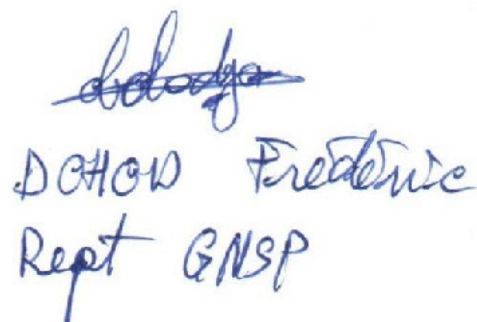 DOHOD Frédéric
Rept GNSP